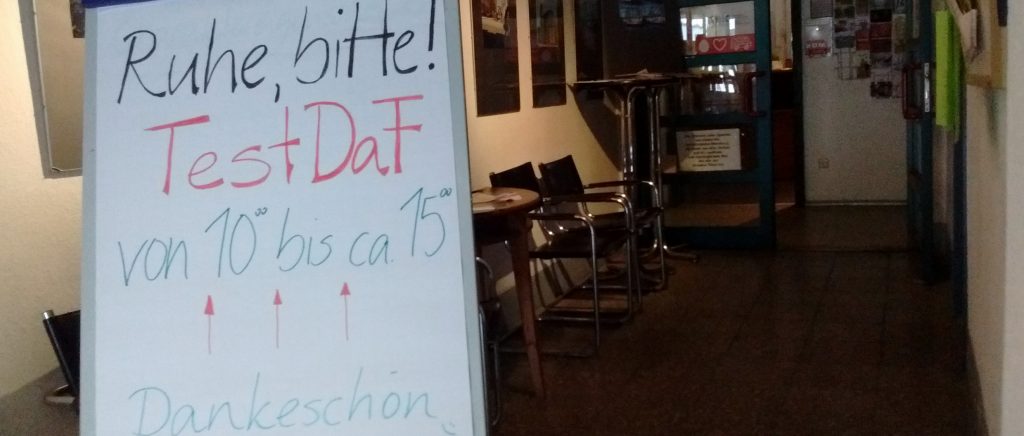 Ruhe, bitte!
TestDaF
von 10⁰⁰ bis ca. 15⁰⁰
Dankeschön